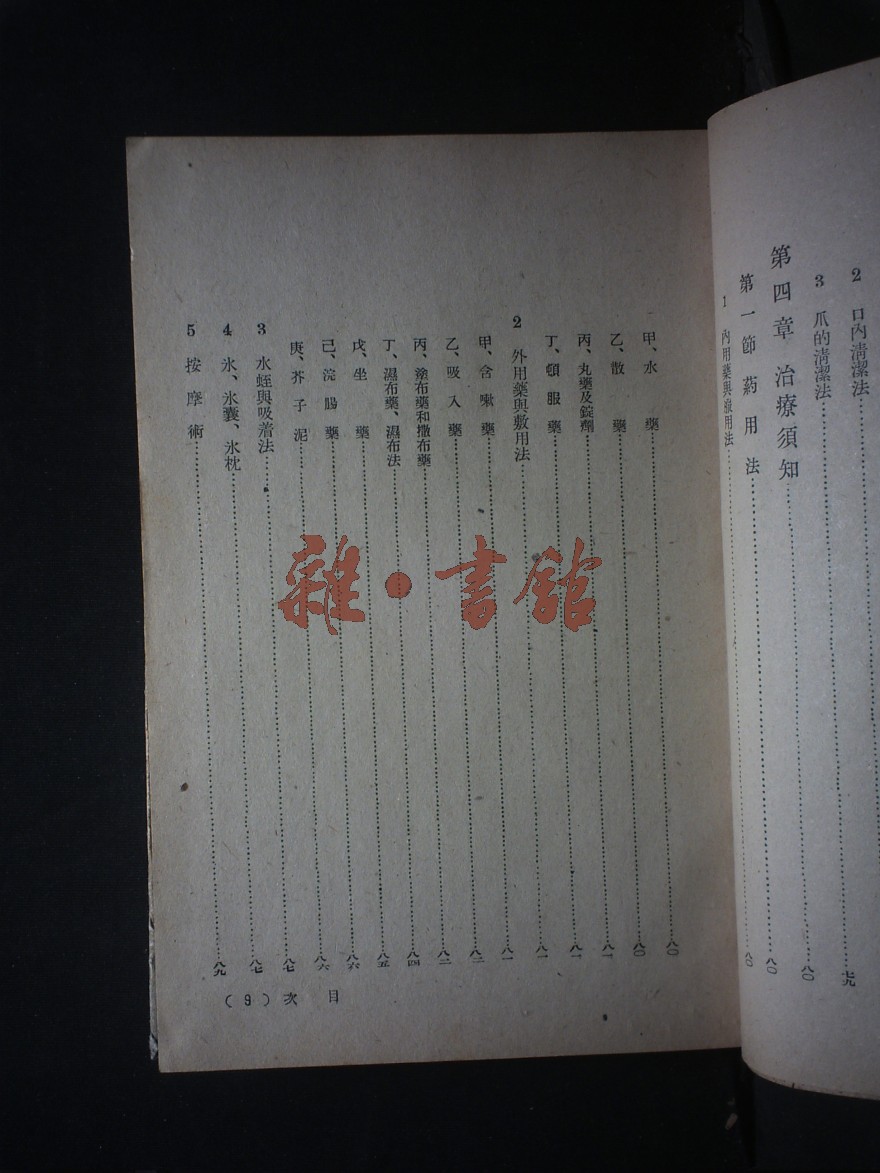 2 口內清潔法……七九
3 爪的清潔法……八〇
第四章 治療須知……八〇
第一節 葯用法……八〇
1 內用藥與服用法……八〇
甲、水藥……八〇
乙、散藥……八〇
丙、丸藥及錠劑……八一
丁、頓服藥……八一
2 外用藥與敷用法……八一
甲、含嗽藥……八二
乙、吸入藥……八二
丙、塗布藥和撒布藥……八四
丁、濕布藥、濕布法……八五
戊、坐藥……八六
己、浣腸藥……八六
庚、芥子泥……八七
3 水蛭與吸着法……八七
4 氷、氷囊、氷枕
5 按摩術……八九
目次(9)
雜·書館